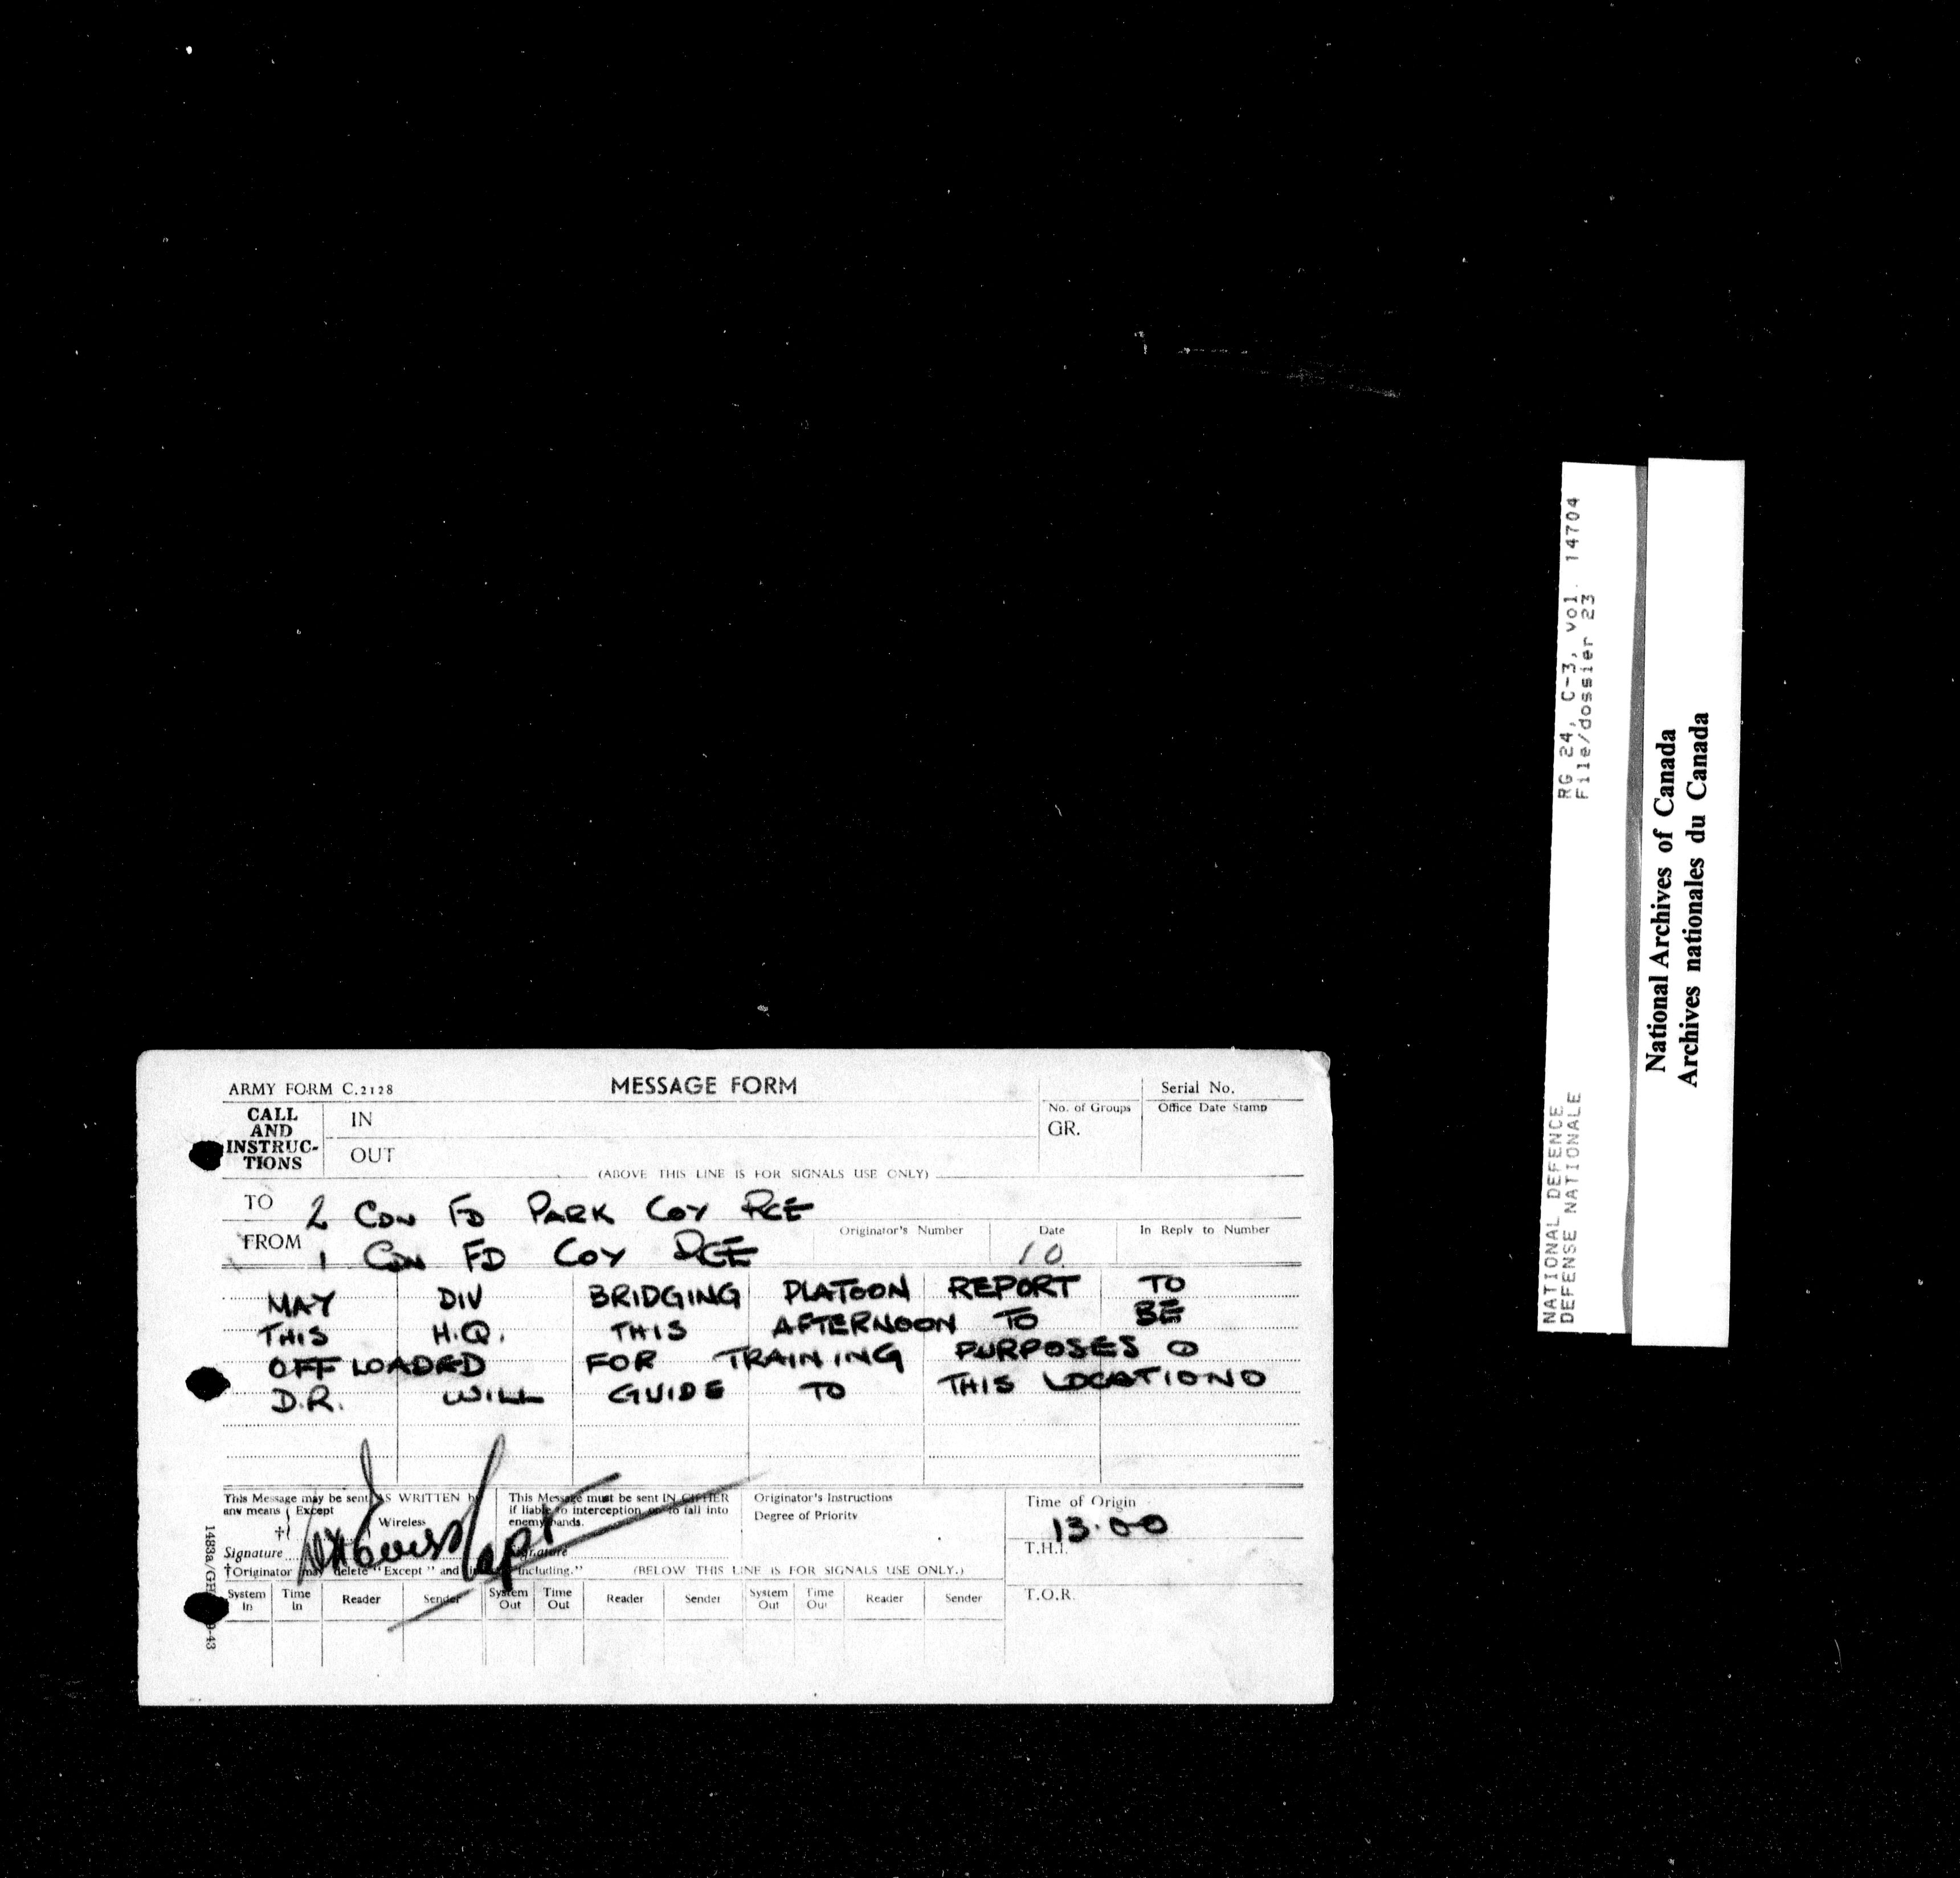 ARMY FORM C.2128
MESSAGE FORM
Serial No.
CALL AND INSTRUC-TIONS
IN
OUT
No. of Groups
GR.
Office Date Stamp
(ABOVE THIS LINE IS FOR SIGNALS USE ONLY)
TO 2 CDN FD PARK COY RCE
FROM 1 CDN FD COY RCE
Originator's Number
Date
10
In Reply to Number
MAY DIV BRIDGING PLATOON REPORT TO
THIS H.Q. THIS AFTERNOON TO BE
OFF LOADED FOR TRAINING PURPOSES O
D.R. WILL GUIDE TO THIS LOCATION O
This Message may be sent AS WRITTEN by
any means Except
Wireless
†
Signature
Capt
This Message must be sent IN CIPHER
if liable to interception or to fall into
enemy hands.
Signature
Originator's Instructions
Degree of Priority
Time of Origin
13.00
T.H.I.
T.O.R.
†Originator may delete "Except" and including."
(BELOW THIS LINE IS FOR SIGNALS USE ONLY.)
System In Time In Reader Sender System Out Time Out Reader Sender System Out Time Out Reader Sender
NATIONAL DEFENCE RG 24, C-3, vol. 14704
DEFENSE NATIONALE File/dossier 23
National Archives of Canada
Archives nationales du Canada